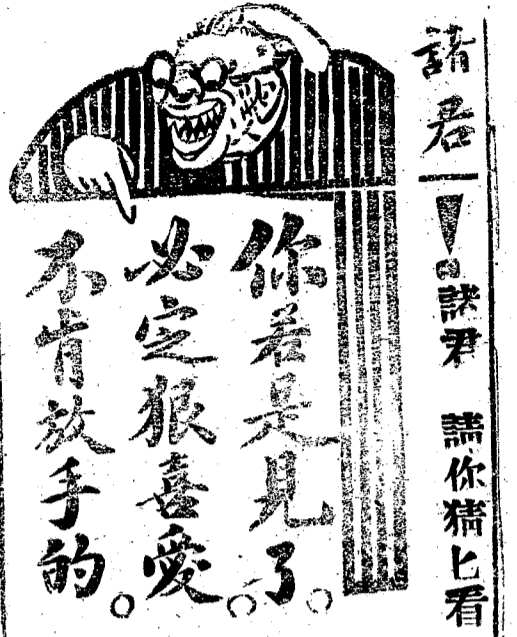 諸君！諸君 請你猜匕看
你若是見了。
必定狠喜愛。
不肯放手的。